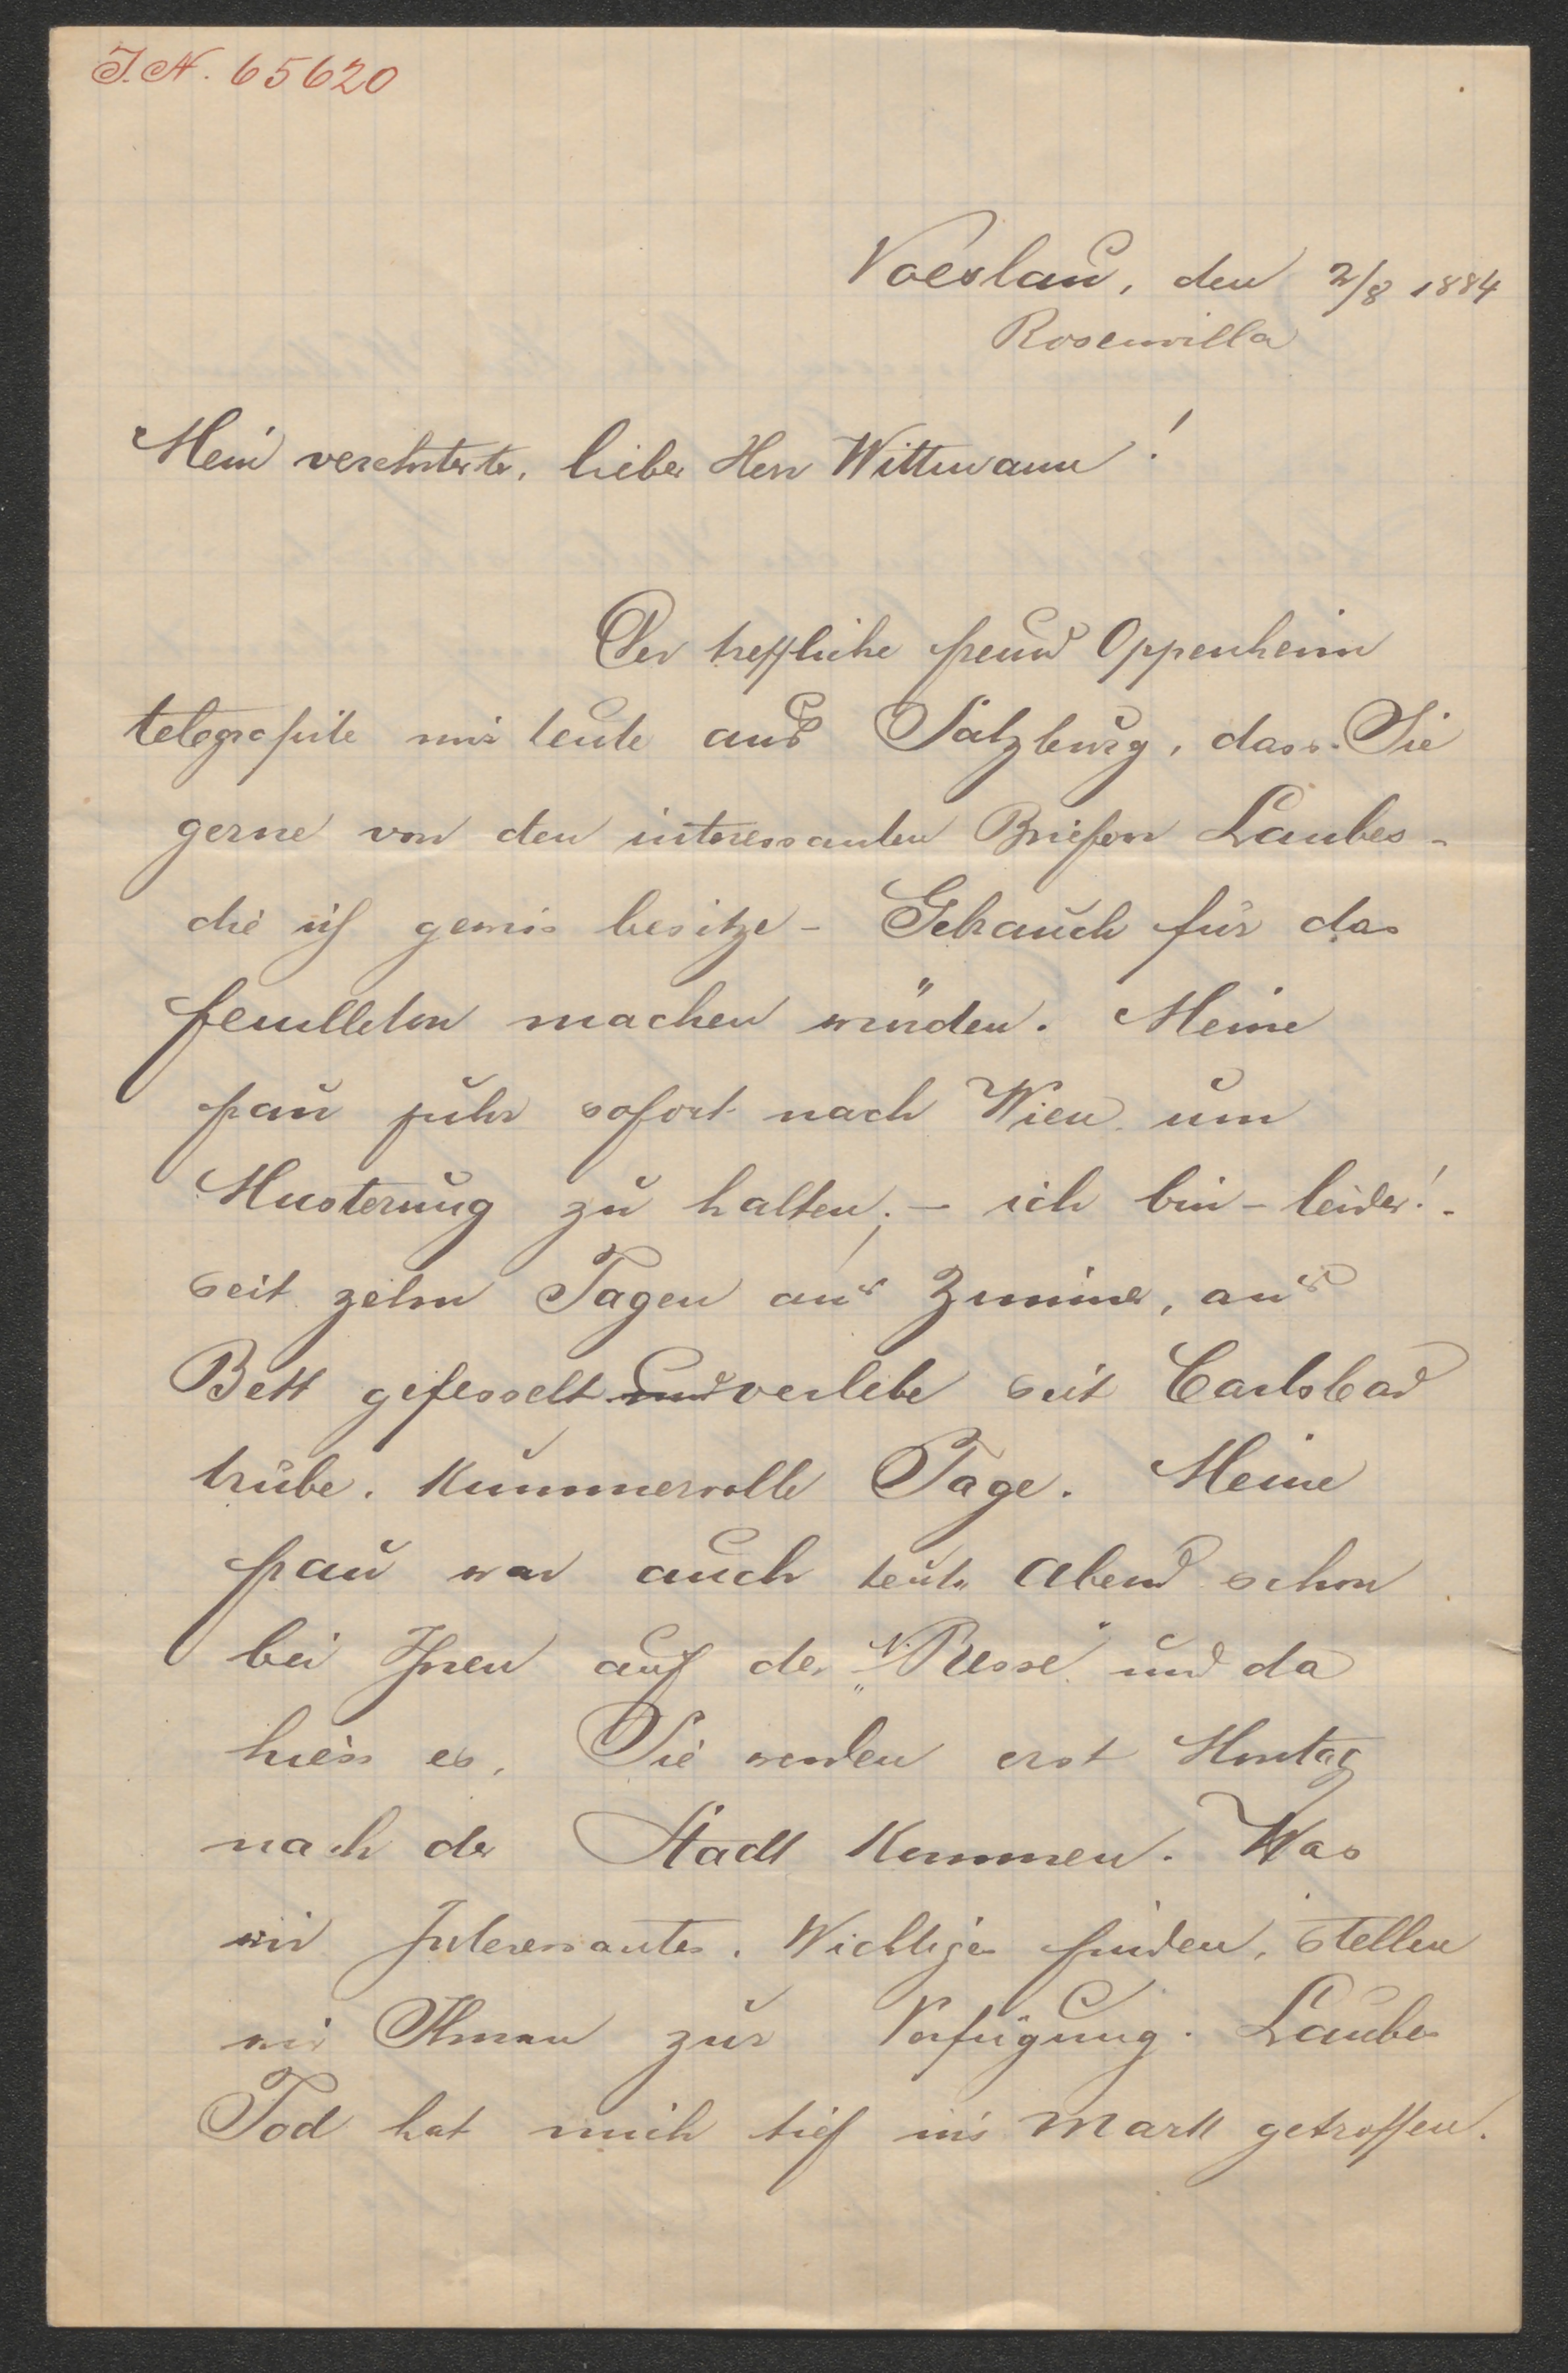 J.N. 65620
Voeslau, den 2/8 1884
Rosenvilla
Mein verehrtester, lieber Herr Wittmann!
Der treffliche Freund Oppenheim
telegrafirte mir heute aus Salzburg, dass Sie
gerne von den interessanten Briefen Laubes -
die ich gewis besitze - Gebrauch für das
Feuilleton machen würden. Meine
Frau fuhr sofort nach Wien um
Musterung zu halten; - ich bin - leider! -
seit zehn Tagen an's Zimmer, an's
Bett gefesselt und verlebe seit Carlsbad
trübe, kummervolle Tage. Meine
Frau war auch heute Abend schon
bei Ihnen auf der „N. Presse" und da
hiess es, Sie werden erst Montag
nach der Stadt kommen. Was
wir Interessantes, Wichtiges finden, stellen
wir Ihnen zur Verfügung. Laubes
Tod hat mich tief in's Mark getroffen.